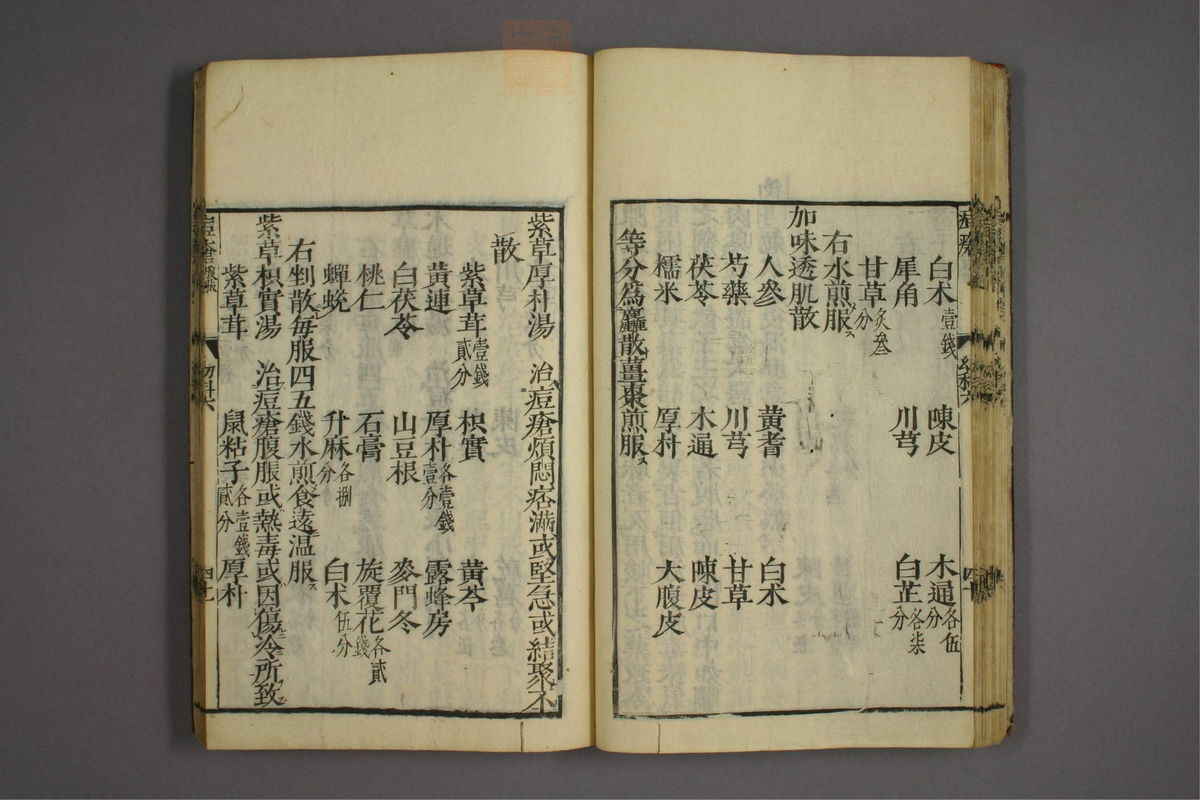 白术壹錢　陳皮　木通各伍分
犀角　川芎　白芷各柒分
甘草炙叄分
右水煎服
加味透肌散
人參　黃耆　白术
芍藥　川芎　甘草
茯苓　木通　陳皮
糯米　厚朴　大腹皮
等分爲麤散薑棗煎服
紫草厚朴湯　治痘瘡煩悶痞滿或堅急或結聚不
散
紫草茸壹錢貳分　枳實　黃芩
黃連　厚朴各壹錢壹分　露蜂房
白茯苓　山豆根　麥門冬
桃仁　石膏　旋覆花各貳錢
蟬蛻　升麻各捌分　白术伍分
右剉散每服四五錢水煎食遠温服
紫草枳實湯　治痘瘡腹脹或熱毒或因傷冷所致
紫草茸　鼠粘子各壹錢貳分　厚朴